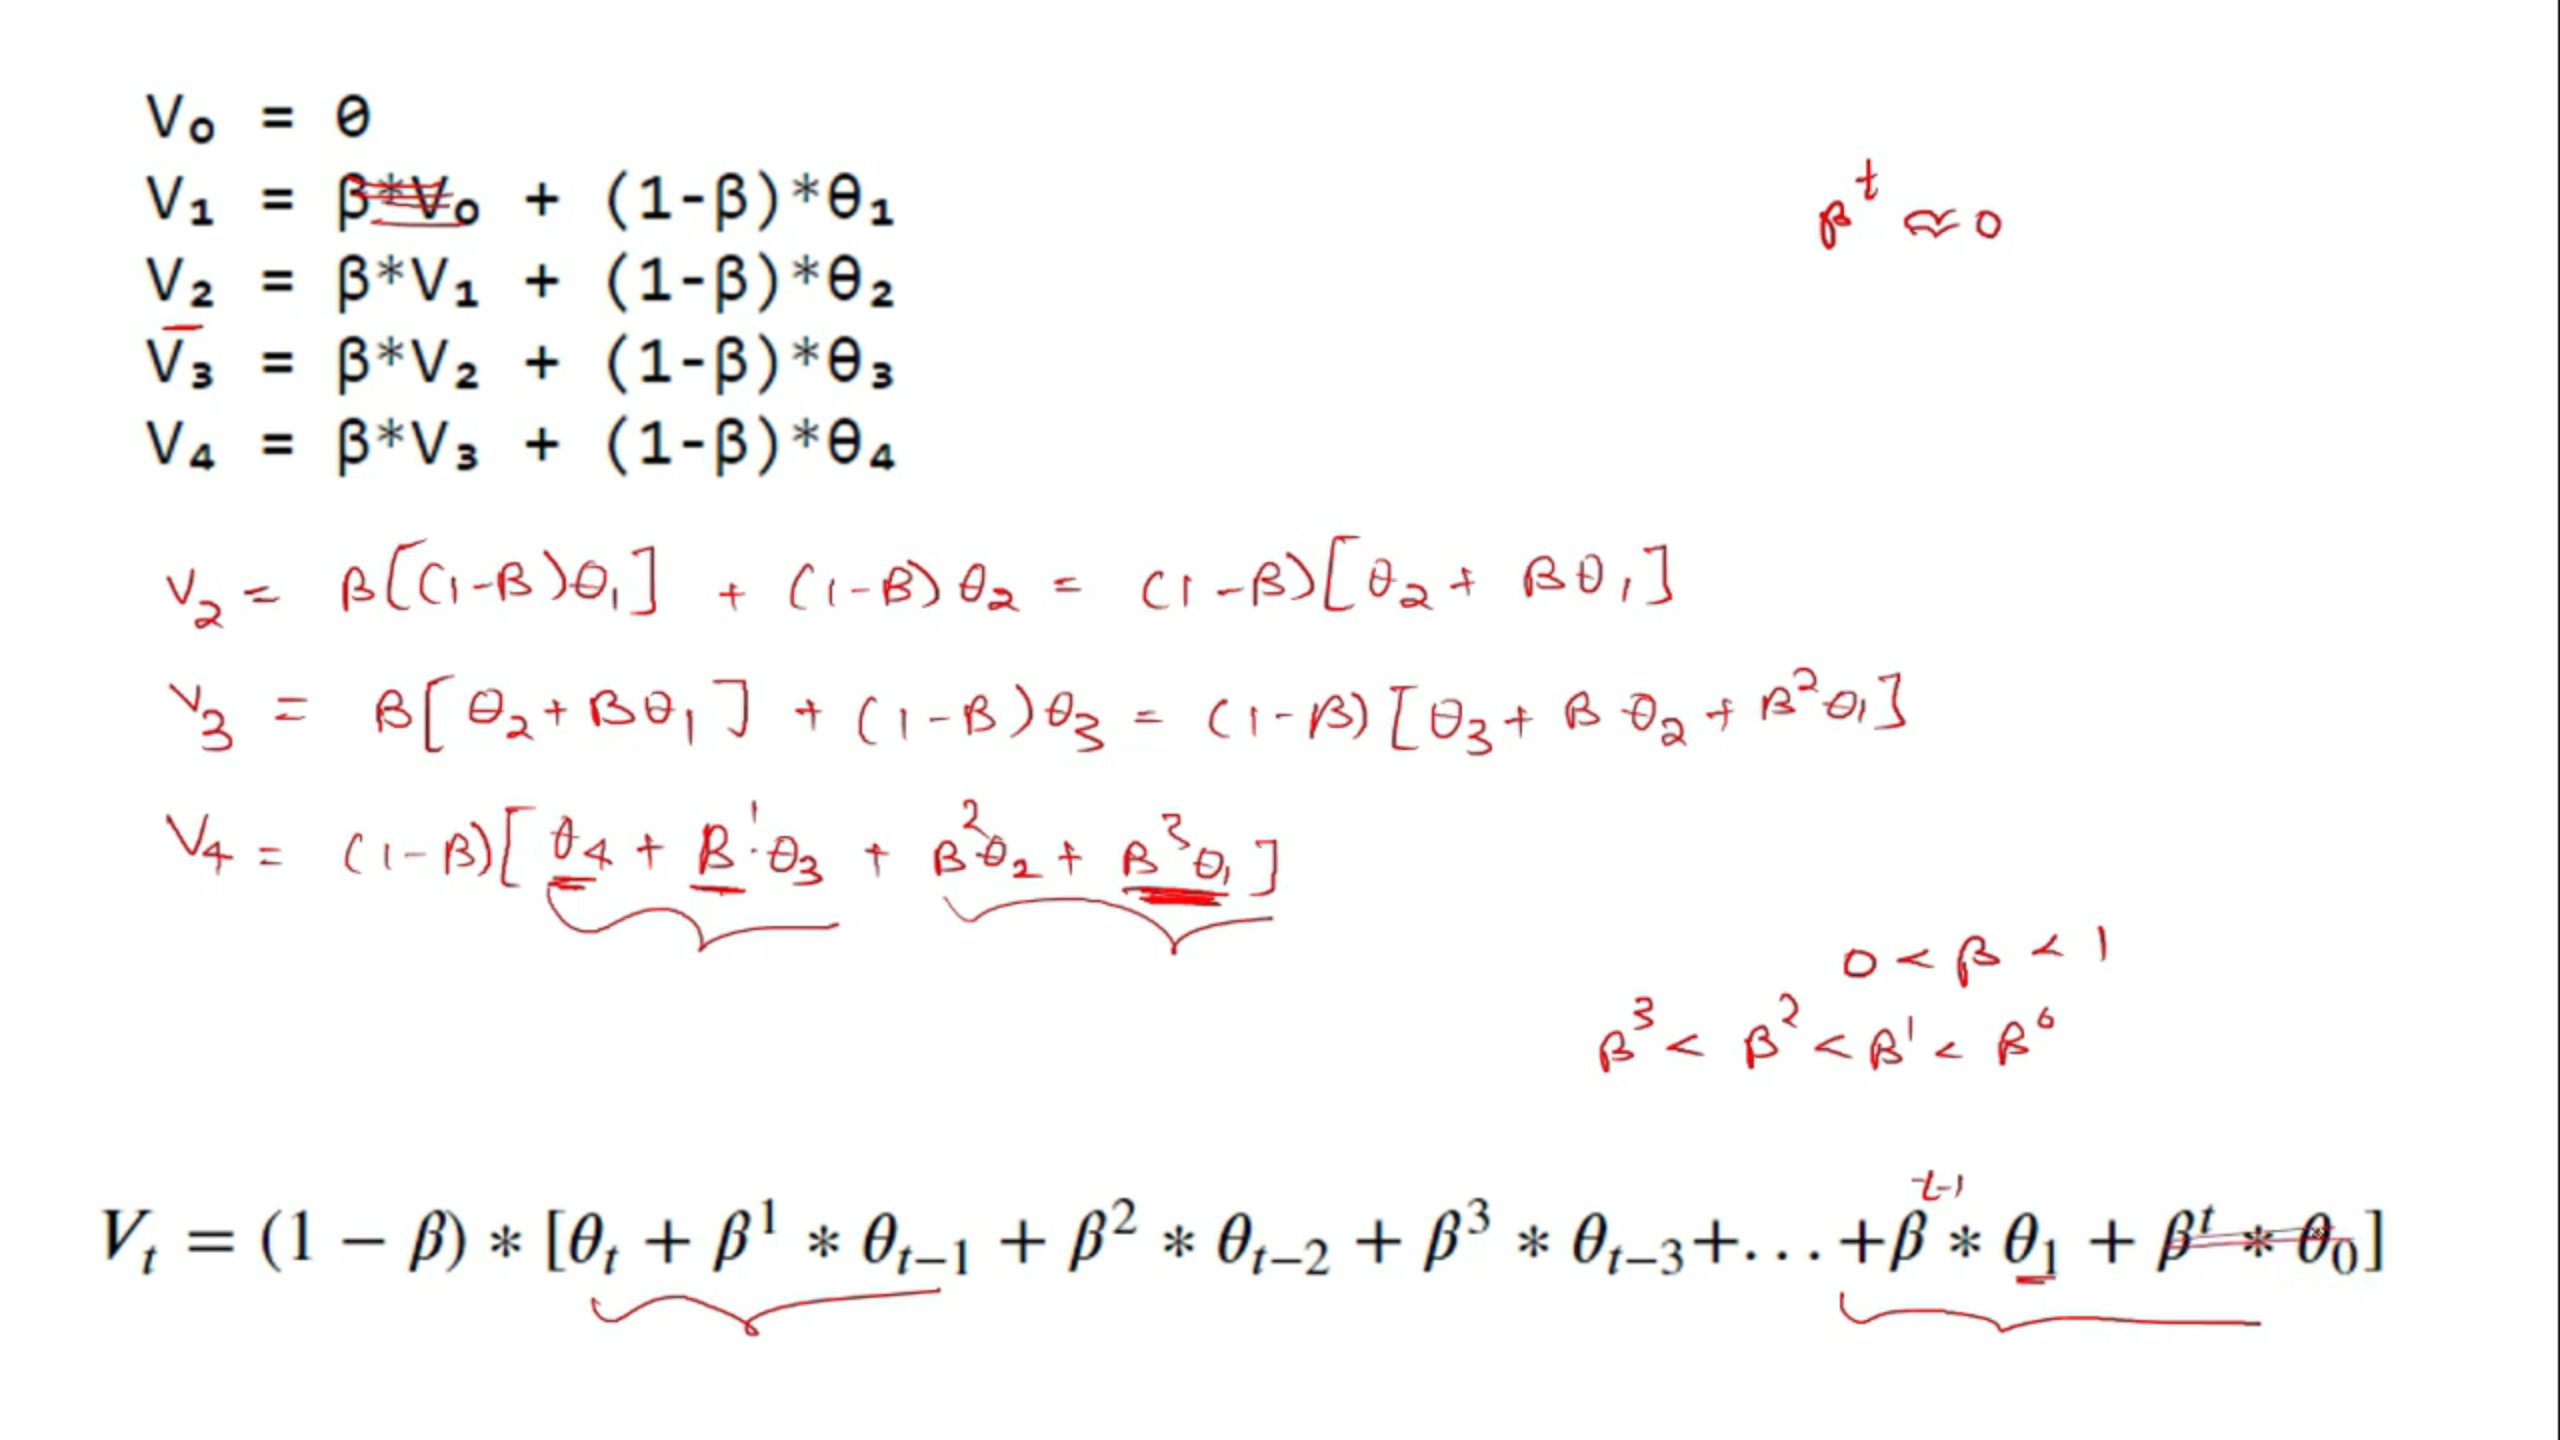 V₀ = 0
V₁ = β*V₀ + (1-β)*θ₁
βᵗ ≈ 0
V₂ = β*V₁ + (1-β)*θ₂
V₃ = β*V₂ + (1-β)*θ₃
V₄ = β*V₃ + (1-β)*θ₄
V₂ = β[(1-β)θ₁] + (1-β)θ₂ = (1-β)[θ₂ + βθ₁]
V₃ = β[θ₂ + βθ₁] + (1-β)θ₃ = (1-β)[θ₃ + βθ₂ + β²θ₁]
V₄ = (1-β)[θ₄ + β¹·θ₃ + β²θ₂ + β³θ₁]
0 < β < 1
β³ < β² < β¹ < β⁰
t-1
Vₜ = (1 − β) * [θₜ + β¹ * θₜ₋₁ + β² * θₜ₋₂ + β³ * θₜ₋₃+...+β * θ₁ + βᵗ * θ₀]